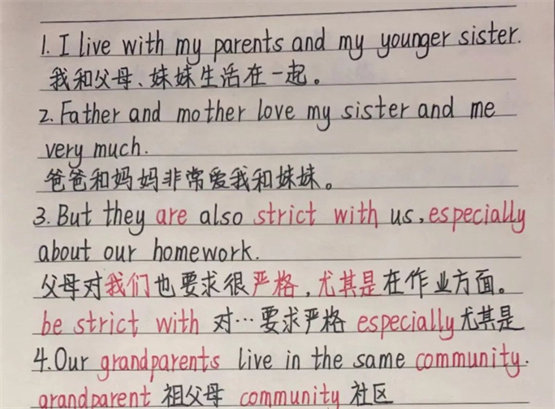 1. I live with my parents and my younger sister.
我和父母、妹妹生活在一起。
2. Father and mother love my sister and me
very much.
爸爸和妈妈非常爱我和妹妹。
3. But they are also strict with us, especially
about our homework.
父母对我们也要求很严格,尤其是在作业方面。
be strict with 对…要求严格 especially 尤其是
4. Our grandparents live in the same community.
grandparent 祖父母 community 社区